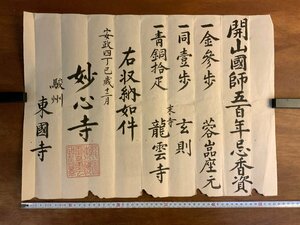 開山國師五百年忌香資
一金參歩 蓉嵓座元
一同壹歩 玄則
一青銅拾疋 末寺 龍雲寺
右収納如件
安政四丁巳歳十一月
妙心寺
駿州
東國寺